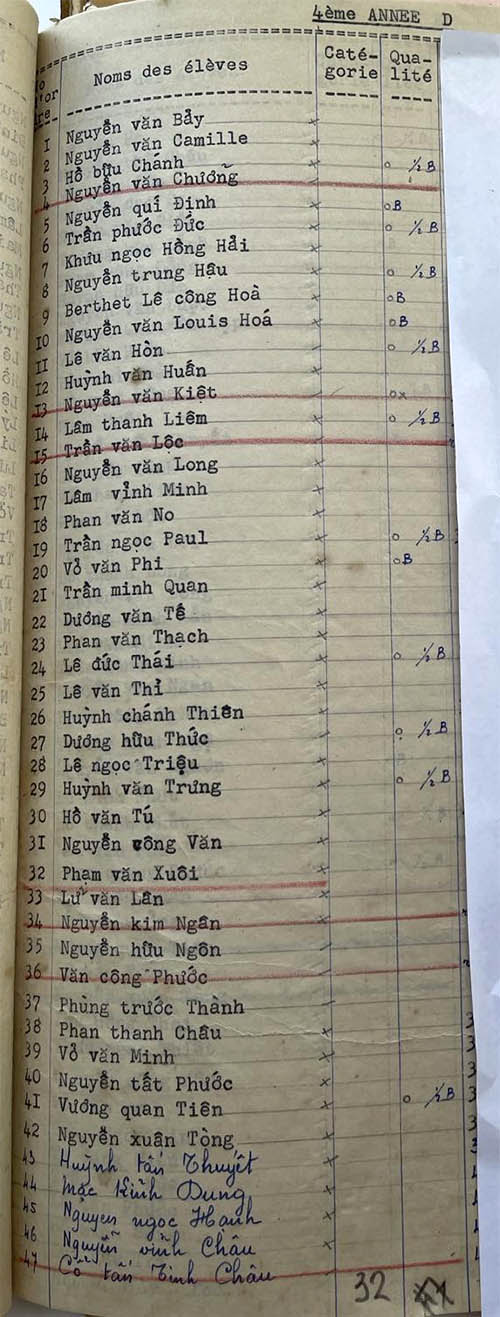 4ème ANNEE D
Noms des élèves Caté-gorie Qua-lité
1 Nguyễn văn Bảy x
2 Nguyễn văn Camille x
3 Hồ bửu Chánh o ½ B
4 Nguyễn văn Chưởng
5 Nguyễn quí Định x oB
6 Trần phước Đức x o ½ B
7 Khưu ngọc Hồng Hải
8 Nguyễn trung Hậu x o ½ B
9 Berthet Lê công Hoà x oB
10 Nguyễn văn Louis Hoá x oB
11 Lê văn Hòn o ½ B
12 Huỳnh văn Huấn x
13 Nguyễn văn Kiệt ox
14 Lâm thanh Liêm x o ½ B
15 Trần văn Lộc
16 Nguyễn văn Long x
17 Lâm vỉnh Minh x
18 Phan văn No x
19 Trần ngọc Paul x o ½ B
20 Vỏ văn Phi x oB
21 Trần minh Quan x
22 Dương văn Tế x
23 Phan văn Thạch x
24 Lê đức Thái x o ½ B
25 Lê văn Thỉ x
26 Huỳnh chánh Thiên x
27 Dương hữu Thức o ½ B
28 Lê ngọc Triệu x
29 Huỳnh văn Trưng x o ½ B
30 Hồ văn Tú x
31 Nguyễn công Văn x
32 Phạm văn Xuôi x
33 Lư văn Lân x
34 Nguyễn kim Ngân
35 Nguyễn hữu Ngôn
36 Văn công Phước
37 Phùng trước Thành
38 Phan thanh Châu x
39 Vỏ văn Minh x
40 Nguyễn tất Phước x
41 Vương quan Tiên x o ½ B
42 Nguyễn xuân Tòng x
43 Huỳnh tấn Thuyết x
44 Mạc Kinh Dung x
45 Nguyen ngọc Hạnh x
46 Nguyễn vinh Châu x
47 Cổ tấn Tinh Châu
32